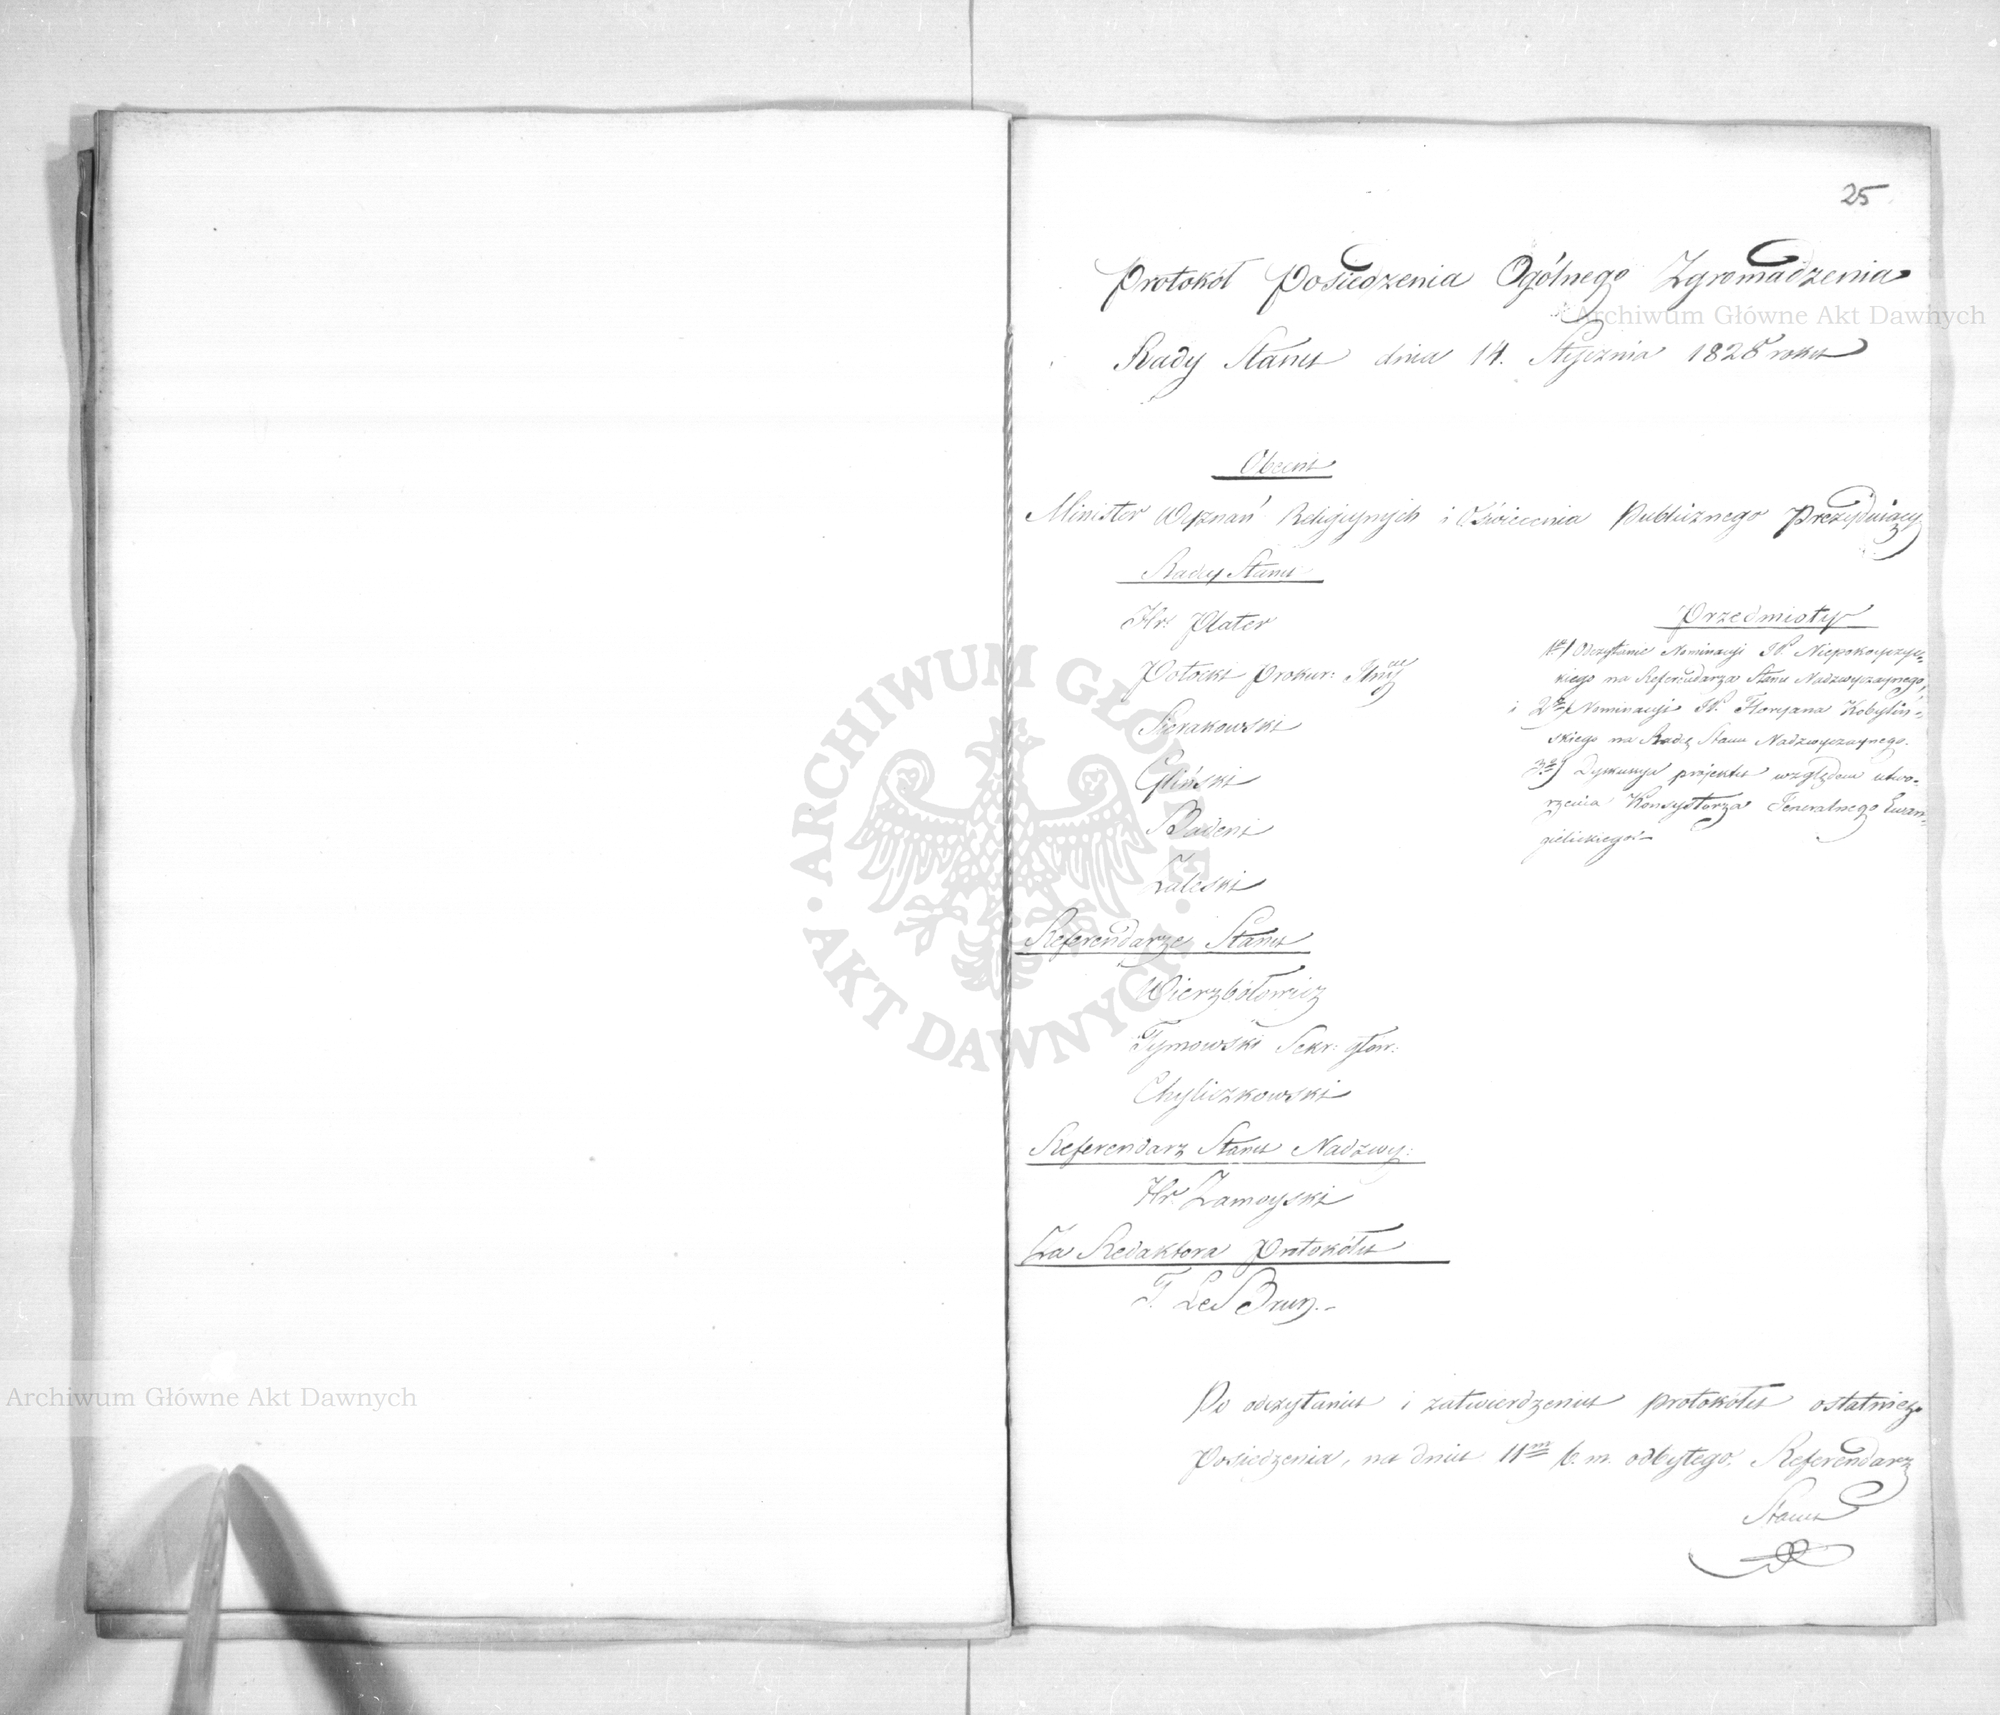 25
Protokół Posiedzenia Ogólnego Zgromadzenia
Rady Stanu dnia 14. Stycznia 1828 roku
Obecni
Minister Wyznań Religijnych i Oświecenia Publicznego Prezydujący
Radcy Stanu
Hr: Plater
Potocki Prokur:
Sierakowski
Gliński
Badeni
Zaleski
Referendarze Stanu
Wierzbołowicz
Tymowski Sekr: głów:
Chyliczkowski
Referendarz Stanu Nadzwy:
Hr: Zamoyski
Za Redaktora Protokółu
F. Le Brun.-
Przedmioty
1e) Odczytanie Nominacyi JP. Niepokoyczyc-
kiego na Referendarza Stanu Nadzwyczaynego,
i 2e) Nominacyi JP. Floryana Kobyliń-
skiego na Radcę Stanu Nadzwyczaynego.
3e) Dyskusya projektu względem utwo-
rzenia Konsystorza Generalnego Ewan-
gielickiego.-
Po odczytaniu i zatwierdzeniu protokółu ostatniego
Posiedzenia, na dniu 11m b. m. odbytego. Referendarz
Stanu
Archiwum Główne Akt Dawnych
Archiwum Główne Akt Dawnych
ARCHIWUM GŁÓWNE · AKT DAWNYCH ·